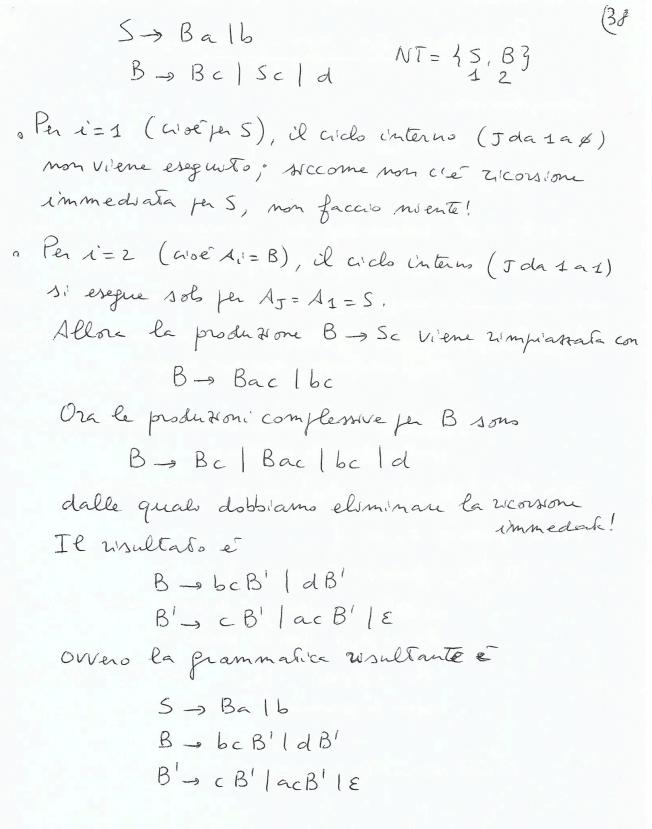 (38
S → Ba | b
NT = { S, B }
1 2
B → Bc | Sc | d
• Per i=1 (cioè per S), il ciclo interno (J da 1 a 0)
non viene eseguito; siccome non c'è ricorsione
immediata per S, non faccio niente!
• Per i=2 (cioè Ai = B), il ciclo interno (J da 1 a 1)
si esegue solo per AJ = A1 = S.
Allora la produzione B → Sc viene rimpiazzata con
B → Bac | bc
Ora le produzioni complessive per B sono
B → Bc | Bac | bc | d
dalle quali dobbiamo eliminare la ricorsione
immediata!
Il risultato è
B → bcB' | dB'
B' → cB' | acB' | ε
ovvero la grammatica risultante è
S → Ba | b
B → bcB' | dB'
B' → cB' | acB' | ε